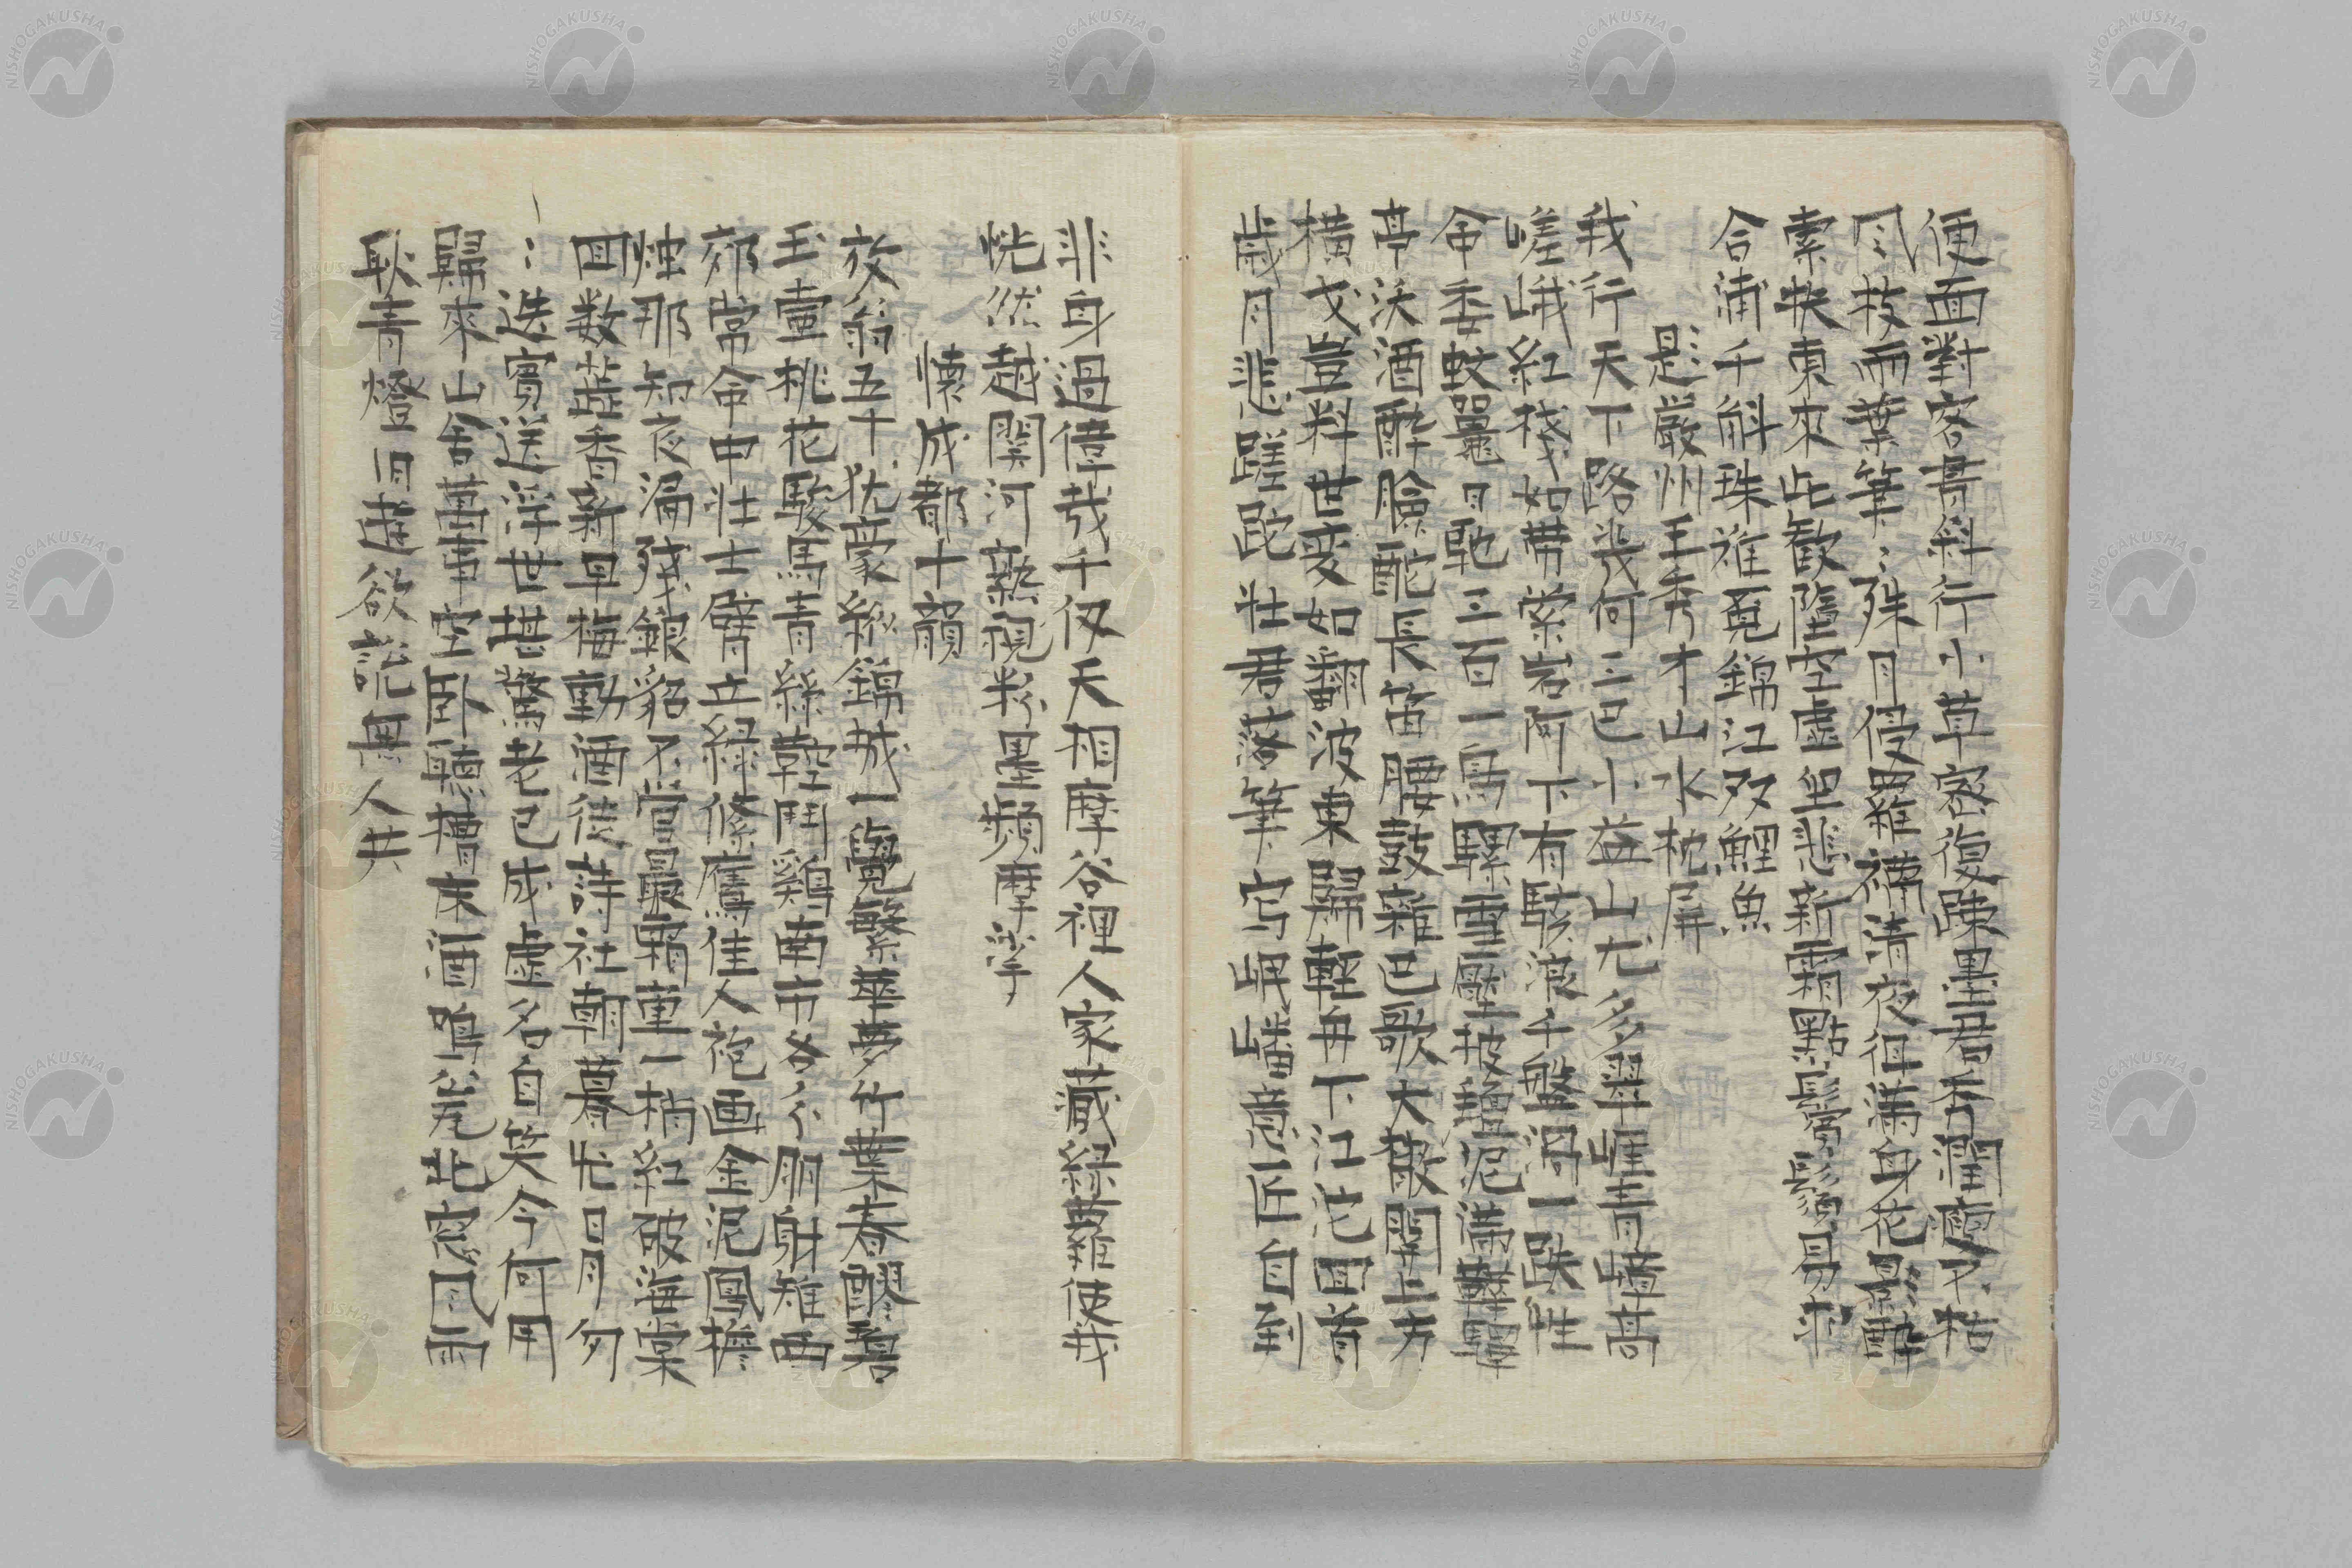 便面對客書斜行小草密復踈墨君秀潤瘦不枯
风枝雨葉筆〻殊月侵羅襪清夜徂滿身花影醉
索扶東來此歡墮空虛坐悲新霜點鬢鬚易求
合浦千斛珠難覓錦江双鯉魚
題嚴州王秀才山水枕屏
我行天下路幾何三巴小益山尤多翠崖青嶂高
嵯峨紅棧如帶縈岩阿下有駭浪千盤渦一跌性
命委蛟鼉日馳三百一烏騾雪壓披氈泥滿靴
亭沃酒醉臉酡長笛腰鼓雜巴歌大散關上方
横戈豈料世變如翻波東歸輕舟下江沱回首
歲月悲蹉跎壮君落筆寫岷嶓意匠自到
非身過偉哉千仞天相摩谷裡人家藏綠蘿使我
恍然越関河熟視粉墨頻摩挲
懷成都十韻
放翁五十犹豪縱錦城一覺繁華夢竹葉春醪碧
玉壷桃花駿馬青絲鞚鬥鷄南市各分朋射雉西
郊常命中壮士臂立綠絛鷹佳人袍画金泥鳳椽
燭那知夜漏殘銀貂不管晨霜重一梢紅破海棠
回数蕊香新早梅動酒徒詩社朝暮忙日月匆
〻迭賓送浮世堪驚老已成虚名自笑今何用
歸來山舍萬事空臥聽糟床酒鳴瓮北窓风雨
耿青燈旧遊欲說無人共